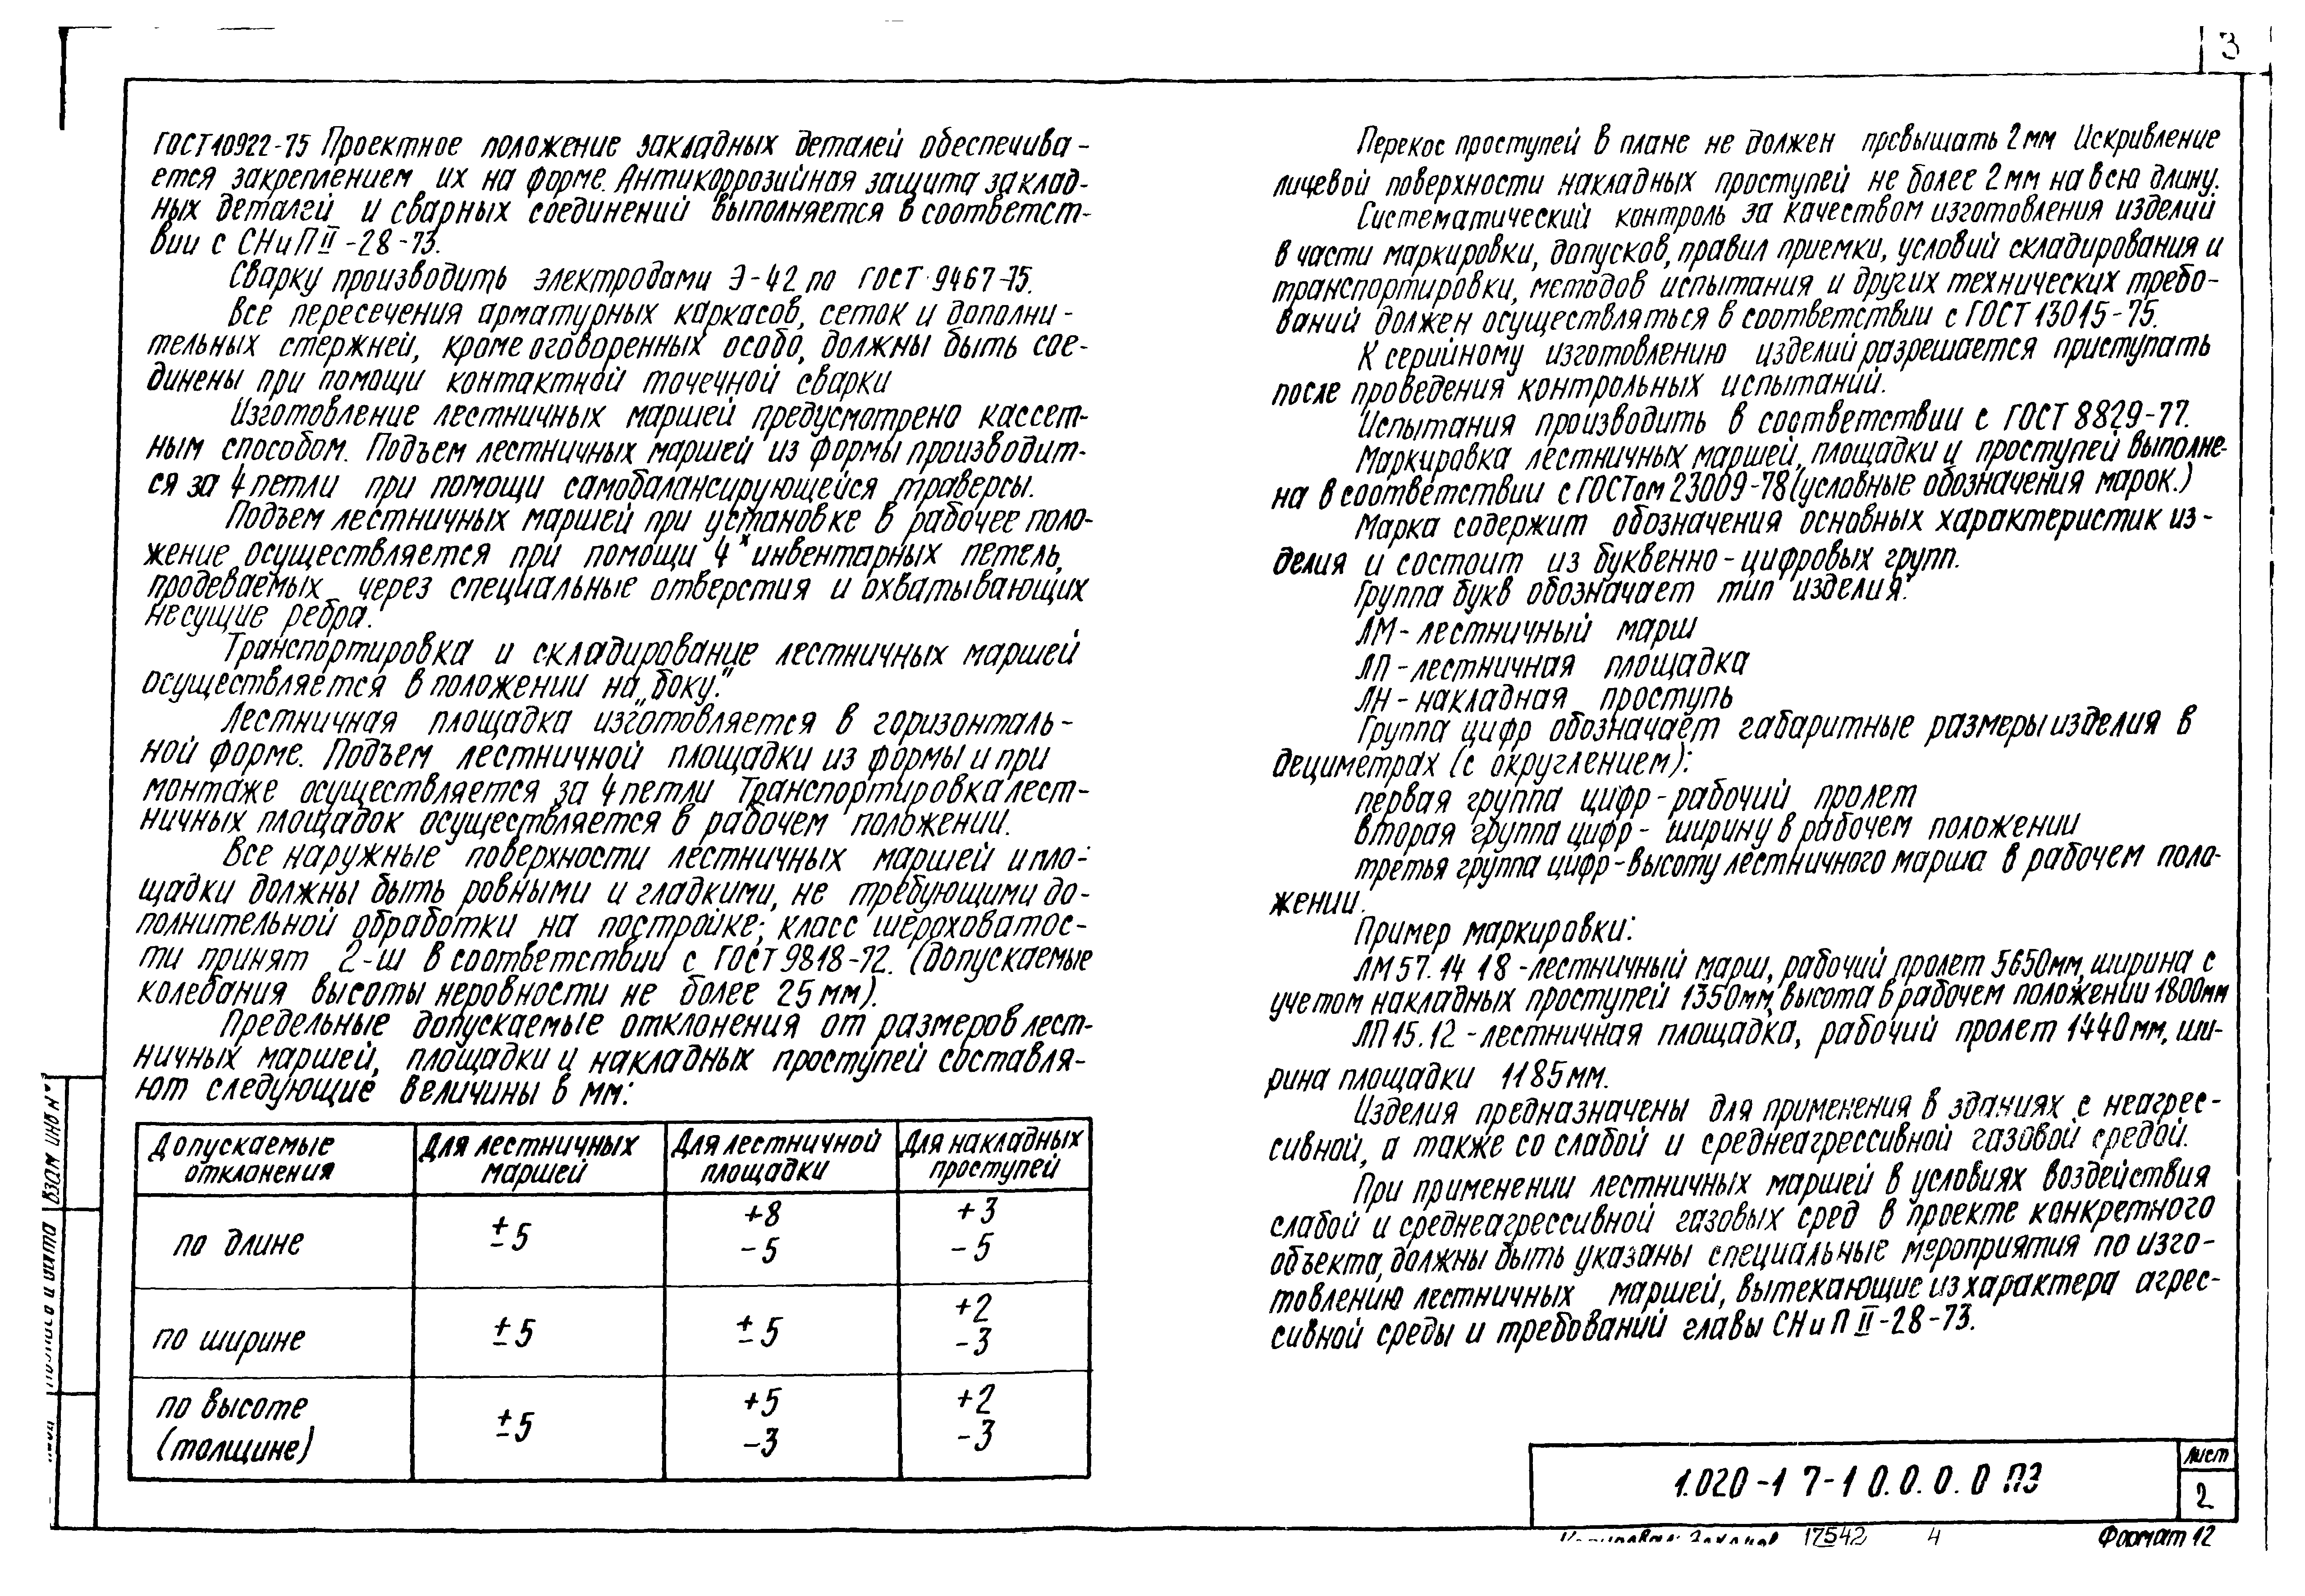 3
ГОСТ 10922-75 Проектное положение закладных деталей обеспечива-
ется закреплением их на форме. Антикоррозийная защита заклад-
ных деталей и сварных соединений выполняется в соответст-
вии с СНиП II-28-73.
Сварку производить электродами Э-42 по ГОСТ 9467-75.
Все пересечения арматурных каркасов, сеток и дополни-
тельных стержней, кроме оговоренных особо, должны быть сое-
динены при помощи контактной точечной сварки
Изготовление лестничных маршей предусмотрено кассет-
ным способом. Подъем лестничных маршей из формы производит-
ся за 4 петли при помощи самобалансирующейся траверсы.
Подъем лестничных маршей при установке в рабочее поло-
жение осуществляется при помощи 4х инвентарных петель,
продеваемых через специальные отверстия и охватывающих
несущие ребра.
Транспортировка и складирование лестничных маршей
осуществляется в положении на „боку."
Лестничная площадка изготовляется в горизонталь-
ной форме. Подъем лестничной площадки из формы и при
монтаже осуществляется за 4 петли Транспортировка лест-
ничных площадок осуществляется в рабочем положении.
Все наружные поверхности лестничных маршей и пло-
щадки должны быть ровными и гладкими, не требующими до-
полнительной обработки на постройке; класс шероховатос-
ти принят 2-ш в соответствии с ГОСТ 9818-72. (допускаемые
колебания высоты неровности не более 25 мм).
Предельные допускаемые отклонения от размеров лест-
ничных маршей, площадки и накладных проступей составля-
ют следующие величины в мм:
Допускаемые отклонения Для лестничных маршей Для лестничной площадки Для накладных проступей
по длине ±5 +8 -5 +3 -5
по ширине ±5 ±5 +2 -3
по высоте (толщине) ±5 +5 -3 +2 -3
Перекос проступей в плане не должен превышать 2 мм Искривление
лицевой поверхности накладных проступей не более 2 мм на всю длину.
Систематический контроль за качеством изготовления изделий
в части маркировки, допусков, правил приемки, условий складирования и
транспортировки, методов испытания и других технических требо-
ваний должен осуществляться в соответствии с ГОСТ 13015-75.
К серийному изготовлению изделий разрешается приступать
после проведения контрольных испытаний.
Испытания производить в соответствии с ГОСТ 8829-77.
Маркировка лестничных маршей, площадки и проступей выполне-
на в соответствии с ГОСТом 23009-78 (условные обозначения марок.)
Марка содержит обозначения основных характеристик из-
делия и состоит из буквенно-цифровых групп.
Группа букв обозначает тип изделия:
ЛМ - лестничный марш
ЛП - лестничная площадка
ЛН - накладная проступь
Группа цифр обозначает габаритные размеры изделия в
дециметрах (с округлением):
первая группа цифр - рабочий пролет
вторая группа цифр - ширину в рабочем положении
третья группа цифр - высоту лестничного марша в рабочем поло-
жении.
Пример маркировки:
ЛМ 57. 14 18 - лестничный марш, рабочий пролет 5650мм, ширина с
учетом накладных проступей 1350мм, высота в рабочем положении 1800мм
ЛП 15. 12 - лестничная площадка, рабочий пролет 1440мм, ши-
рина площадки 1185мм.
Изделия предназначены для применения в зданиях с неагрес-
сивной, а также со слабой и среднеагрессивной газовой средой.
При применении лестничных маршей в условиях воздействия
слабой и среднеагрессивной газовых сред в проекте конкретного
объекта, должны быть указаны специальные мероприятия по изго-
товлению лестничных маршей, вытекающие из характера агрес-
сивной среды и требований главы СНиП II-28-73.
1.020-1 7-1 0.0.0.0 ПЗ
Лист
2
17542 4 Формат 12
Взам инв №